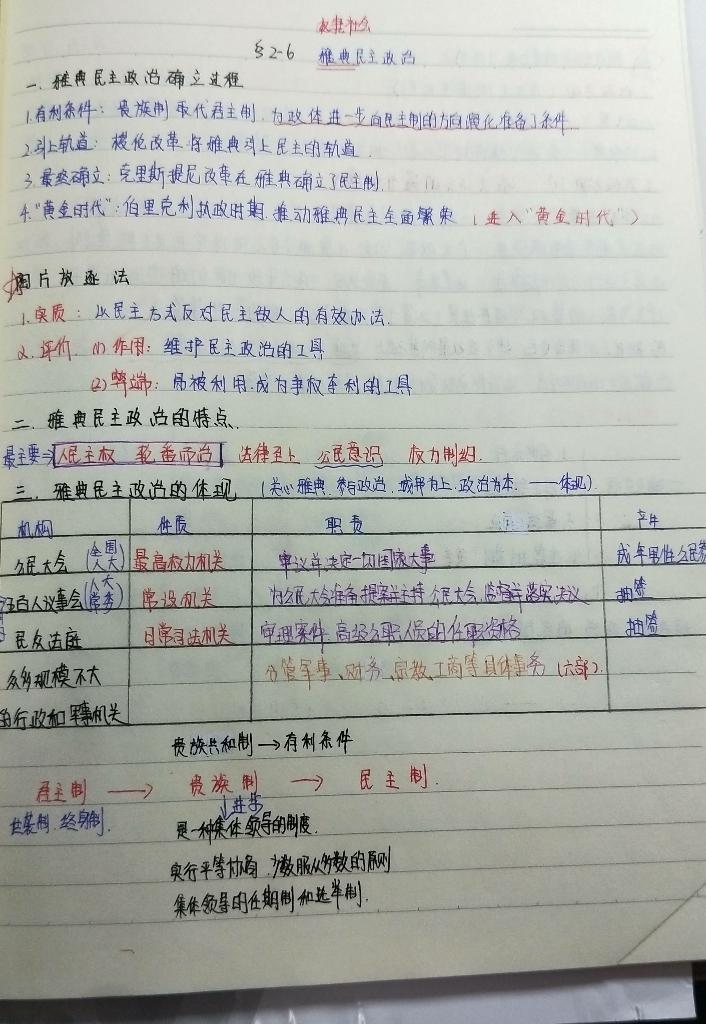 §2-6 雅典民主政治
一、雅典民主政治确立过程
1.有利条件：贵族制取代君主制，为政体进一步向民主制的方向演化准备了条件
2.引上轨道：梭伦改革将雅典引上民主的轨道.
3.最终确立：克里斯提尼改革在雅典确立了民主制
4."黄金时代"：伯里克利执政时期，推动雅典民主全面繁荣（进入"黄金时代"）
陶片放逐法
1.实质：以民主方式反对民主敌人的有效办法.
2.评价 (1)作用：维护民主政治的工具
(2)弊端：易被利用，成为争权夺利的工具
二、雅典民主政治的特点.
最主要⇒人民主权 轮番而治 法律至上 公民意识 权力制约.
三、雅典民主政治的体现（关心雅典，参与政治，城邦为上，政治为本. ——体现）
机构 性质 职责 产生
公民大会（全国人大） 最高权力机关 审议并决定一切国家大事 成年男性公民
五百人议事会（人大常委） 常设机关 为公民大会准备提案并主持公民大会，监督并落实决议 抽签
民众法庭 日常司法机关 审理案件 高级公职人员的任职资格 抽签
众多规模不大 分管军事、财务、宗教、工商等具体事务（六部）.
的行政和军事机关
贵族共和制→有利条件
君主制 → 贵族制 → 民主制.
↓进步
世袭制、终身制. 是一种集体领导的制度.
实行平等协商，少数服从多数的原则
集体领导的任期制和选举制.